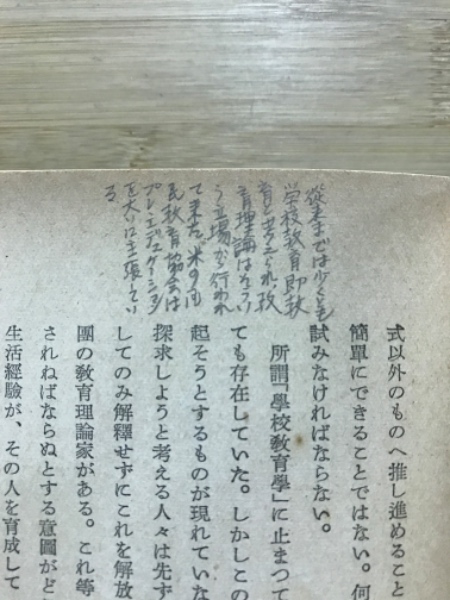 従来までは少くとも
学校教育即教
育と考えられ、教
育理論はそうい
う立場から行われ
て来たが米の国
民教育協会は
プレ・エデュケイション
を大いに主張してい
る
式以外のものへ推し進めること
簡單にできることではない。何
試みなければならない。
所謂「學校教育學」に止まつて
ても存在していた。しかしこの
起そうとするものが現れていな
探求しようと考える人々は先ず
してのみ解釋せずにこれを解放
團の教育理論家がある。これ等
されねばならぬとする意圖がど
生活經驗が、その人を育成して